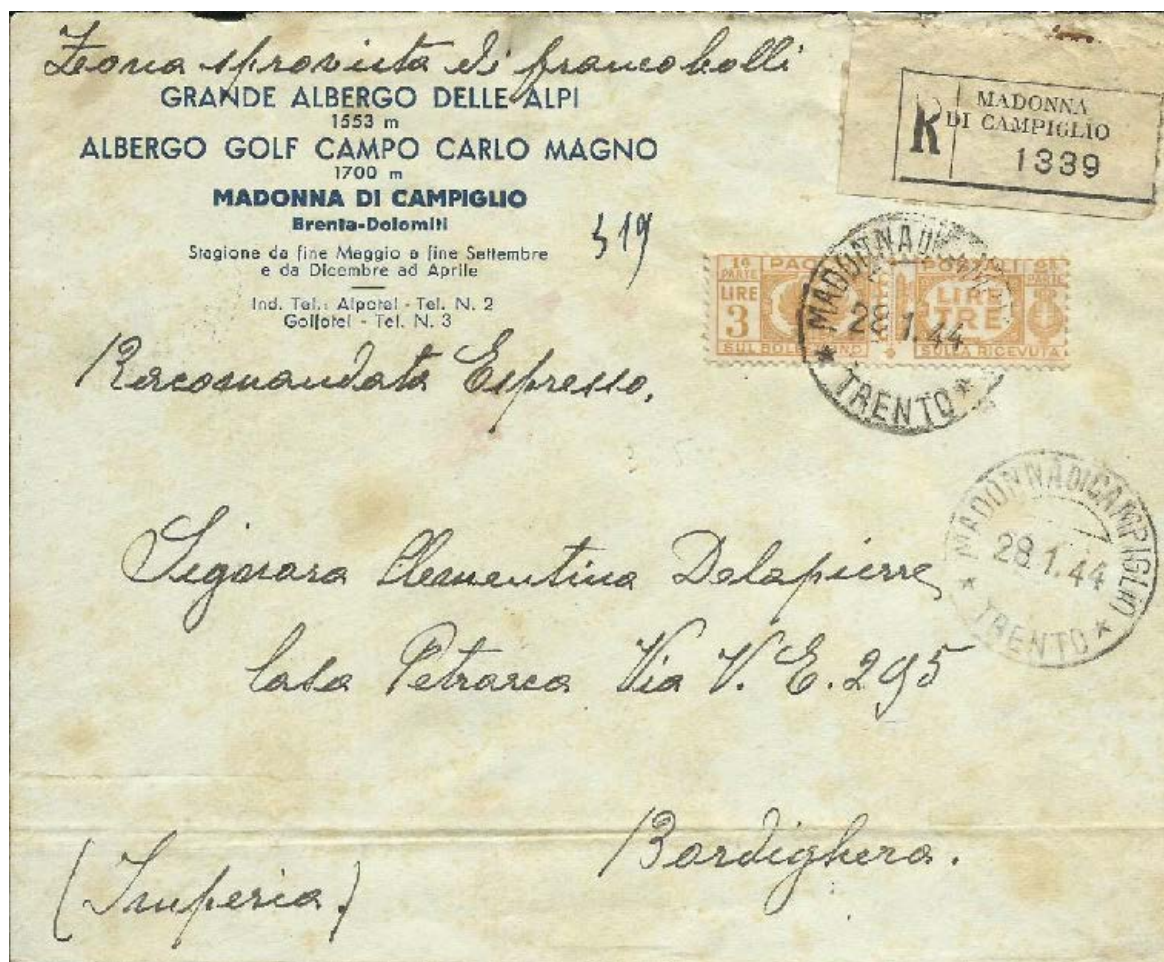 Zona sprovista di francobolli
GRANDE ALBERGO DELLE ALPI
1553 m
ALBERGO GOLF CAMPO CARLO MAGNO
1700 m
MADONNA DI CAMPIGLIO
Brenta-Dolomiti
Stagione da fine Maggio a fine Settembre
e da Dicembre ad Aprile
Ind. Tel.: Alpotel - Tel. N. 2
Golfotel - Tel. N. 3
319
R
MADONNA
DI CAMPIGLIO
1339
1ª PARTE
LIRE
3
SUL BOLLETTINO
POSTALI
2ª PARTE
LIRE
TRE
SULLA RICEVUTA
MADONNA DI
28.1.44
* TRENTO *
Raccomandata Espresso.
MADONNA DI CAMPIGLIO
28.1.44
* TRENTO *
Signora Clementina Delapierre
Casa Petrarca Via V. E. 295
Bordighera.
(Imperia)